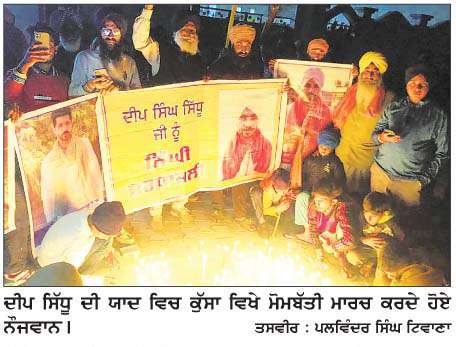 ਦੀਪ ਸਿੰਘ ਸਿੱਧੂ
ਜੀ ਨੂੰ
ਨਿੱਘੀ
ਸ਼ਰਧਾਂਜਲੀ
ਦੀਪ ਸਿੱਧੂ ਦੀ ਯਾਦ ਵਿਚ ਕੁੱਸਾ ਵਿਖੇ ਮੋਮਬੱਤੀ ਮਾਰਚ ਕਰਦੇ ਹੋਏ
ਨੌਜਵਾਨ।
ਤਸਵੀਰ : ਪਲਵਿੰਦਰ ਸਿੰਘ ਟਿਵਾਣਾ